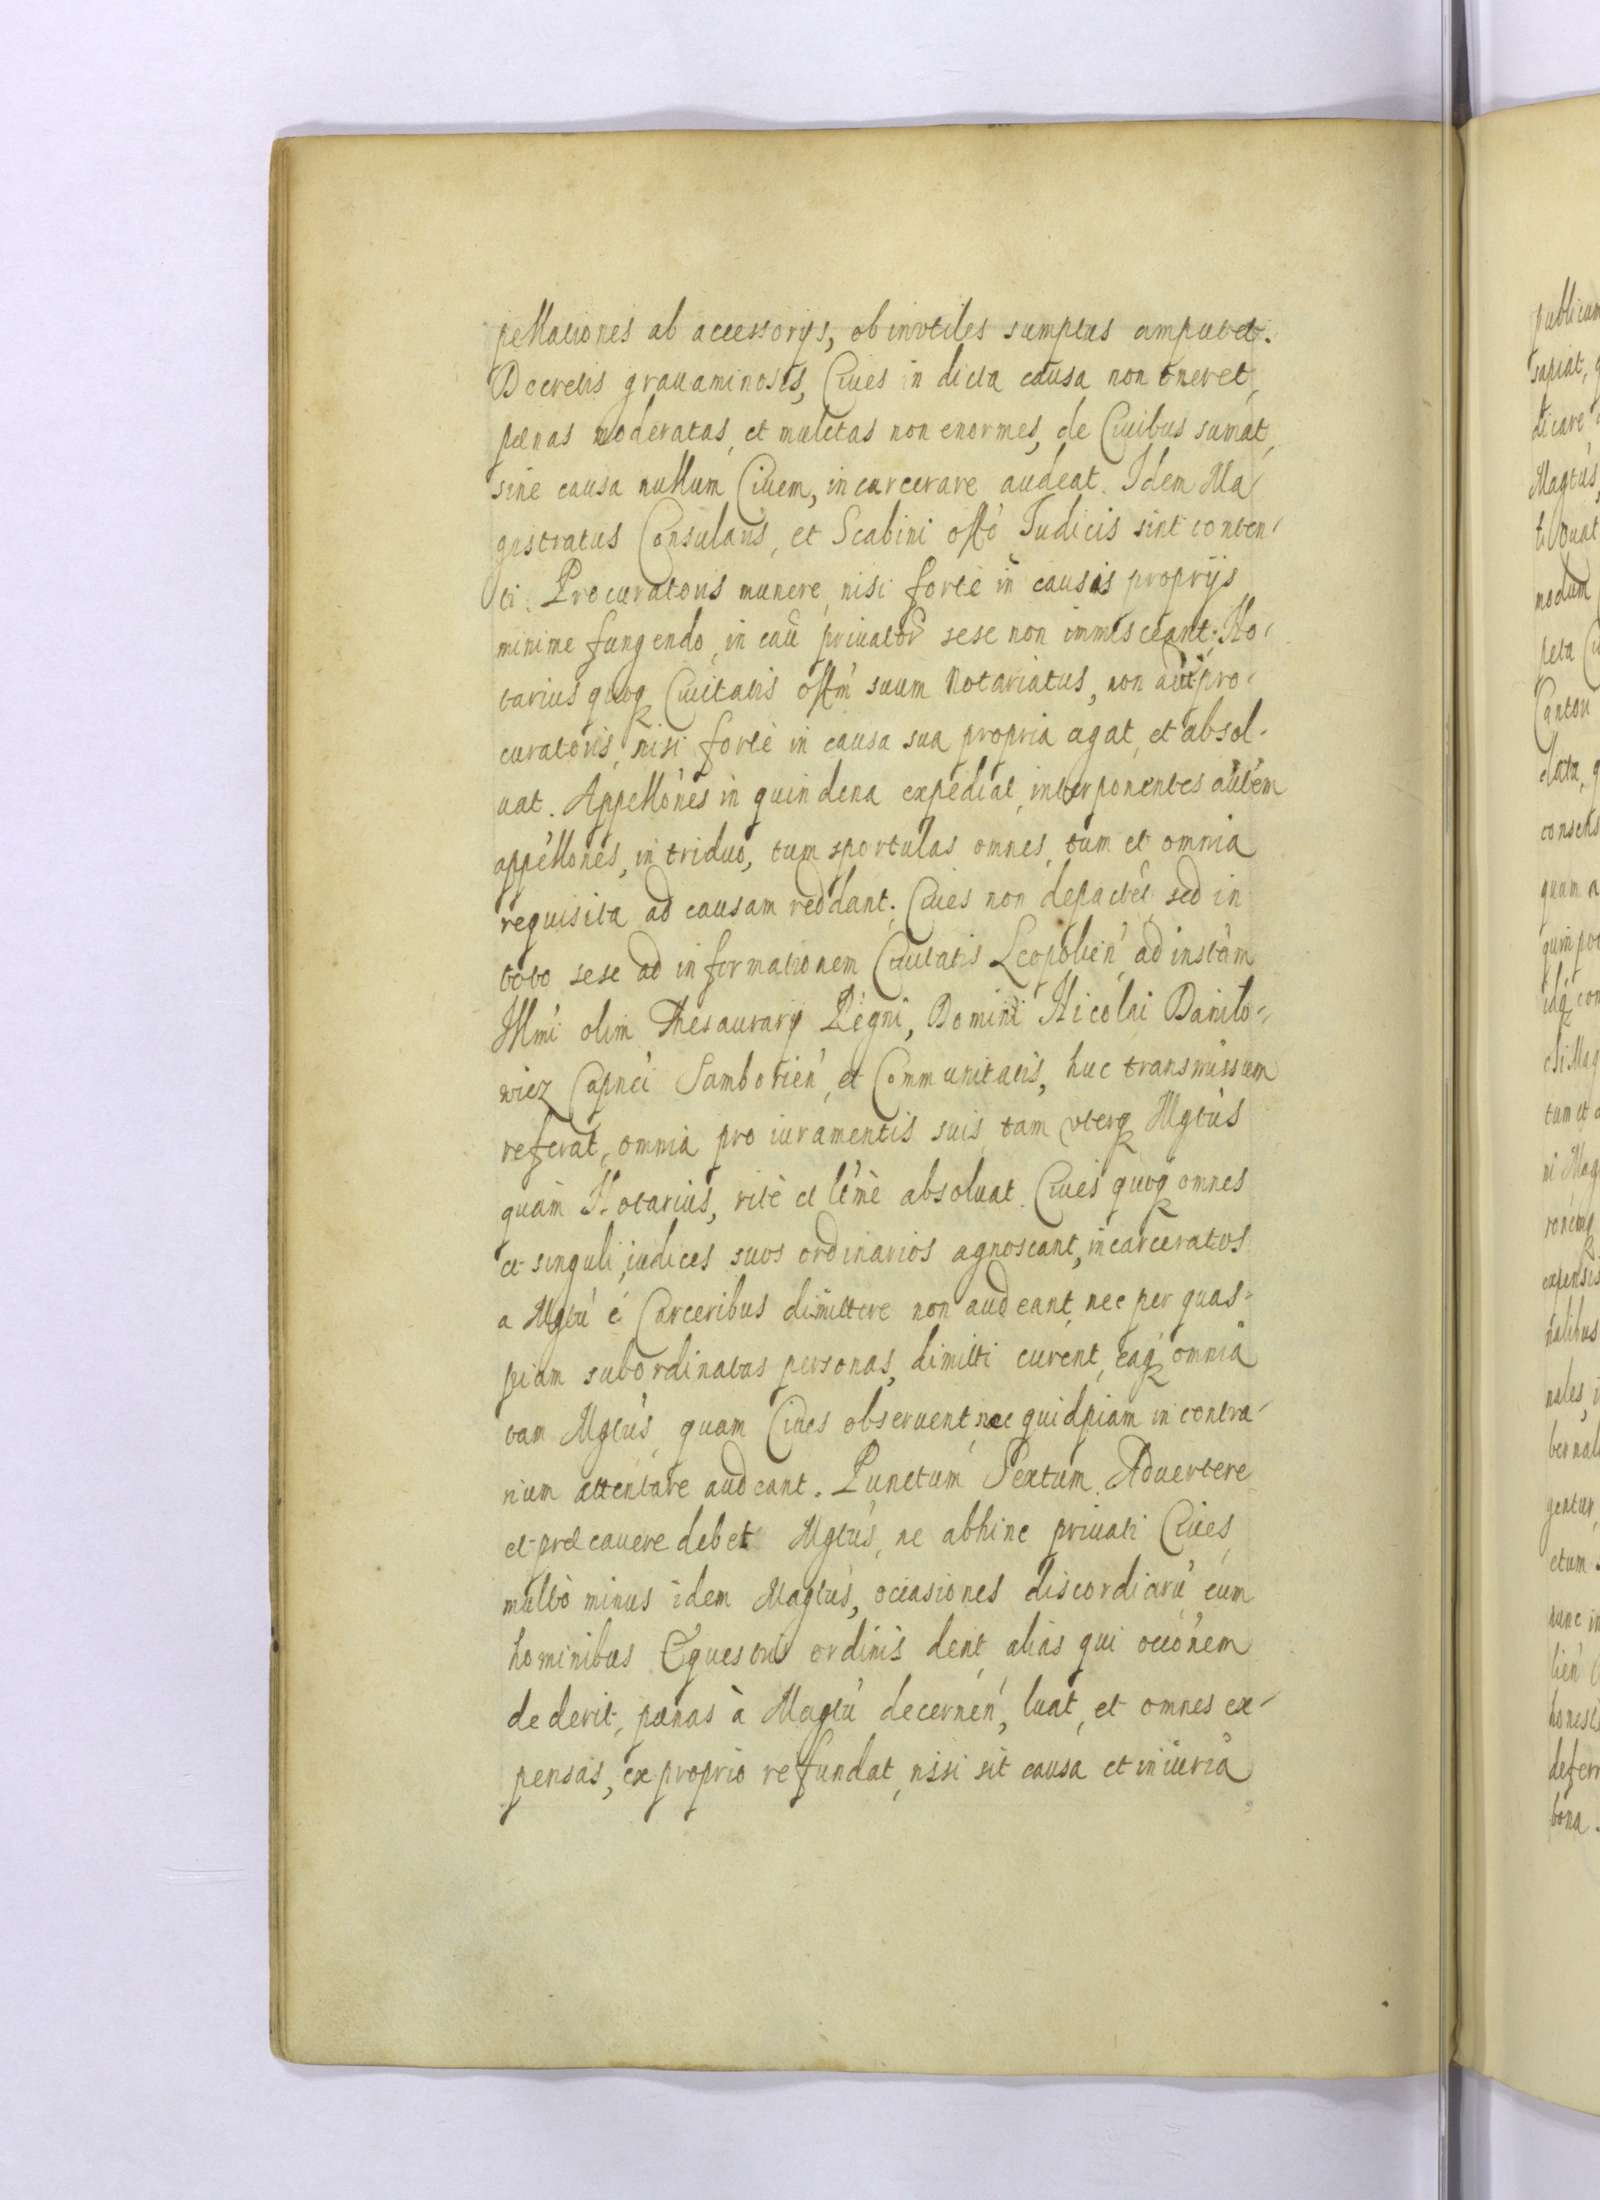 pellationes ab accessorijs, ob invtiles sumptus amputet.
Decretis grauaminosis, Ciues in dicta causa non oneret,
pœnas moderatas, et mulctas non enormes, de Ciuibus sumat,
sine causa nullum Ciuem, incarcerare audeat. Idem Ma
gistratus Consularis, et Scabini offo Iudicis sint conten-
ti. Procuratoris munere, nisi fortè in causis proprijs
minime fungendo, in caũ priuator sese non immisceant; No-
tarius quoq Ciuitatis offm suum Notariatus, non aut pro-
curatoris, nisi fortè in causa sua propria agat, et absol-
uat. Appellónes in quindena expediat, interponentes autem
appéllónes, in triduo, tum sportulas omnes, tum et omnia
requisita ad causam reddant. Ciues non depactet, sed in
toto sese ad informationem Ciuitatis Leopolien ad instam
Illmi olim Thesaurary Regni, Domini Nicolai Danilo-
wicz Capnei Samborien, et Communitatis, huc transmissum
referat, omnia pro iuramentis suis tam vterq Mgtus
quàm Notarius, ritè et ltmè absoluat. Ciues quoq omnes
et singuli, iudices suos ordinarios agnoscant, incarceratos
a Mgtu è Carceribus dimittere non audeant, nec per quas-
piam subordinatas personas, dimitti curent, eaq omnia
tam Mgtus, quam Ciues obseruent nec quidpiam in contra-
rium attentare audeant. Punctum Sextum. Aduertere
et præcauere debet Mgtus, ne abhinc priuati Ciues,
multò minus idem Magtus, occasiones discordiarũ cum
hominibus Equestris ordinis dent, alias qui occónem
dederit, pœnas à Magtu decernen, luat, et omnes ex-
pensas, ex proprio refundat, nisi sit causa et iniuria